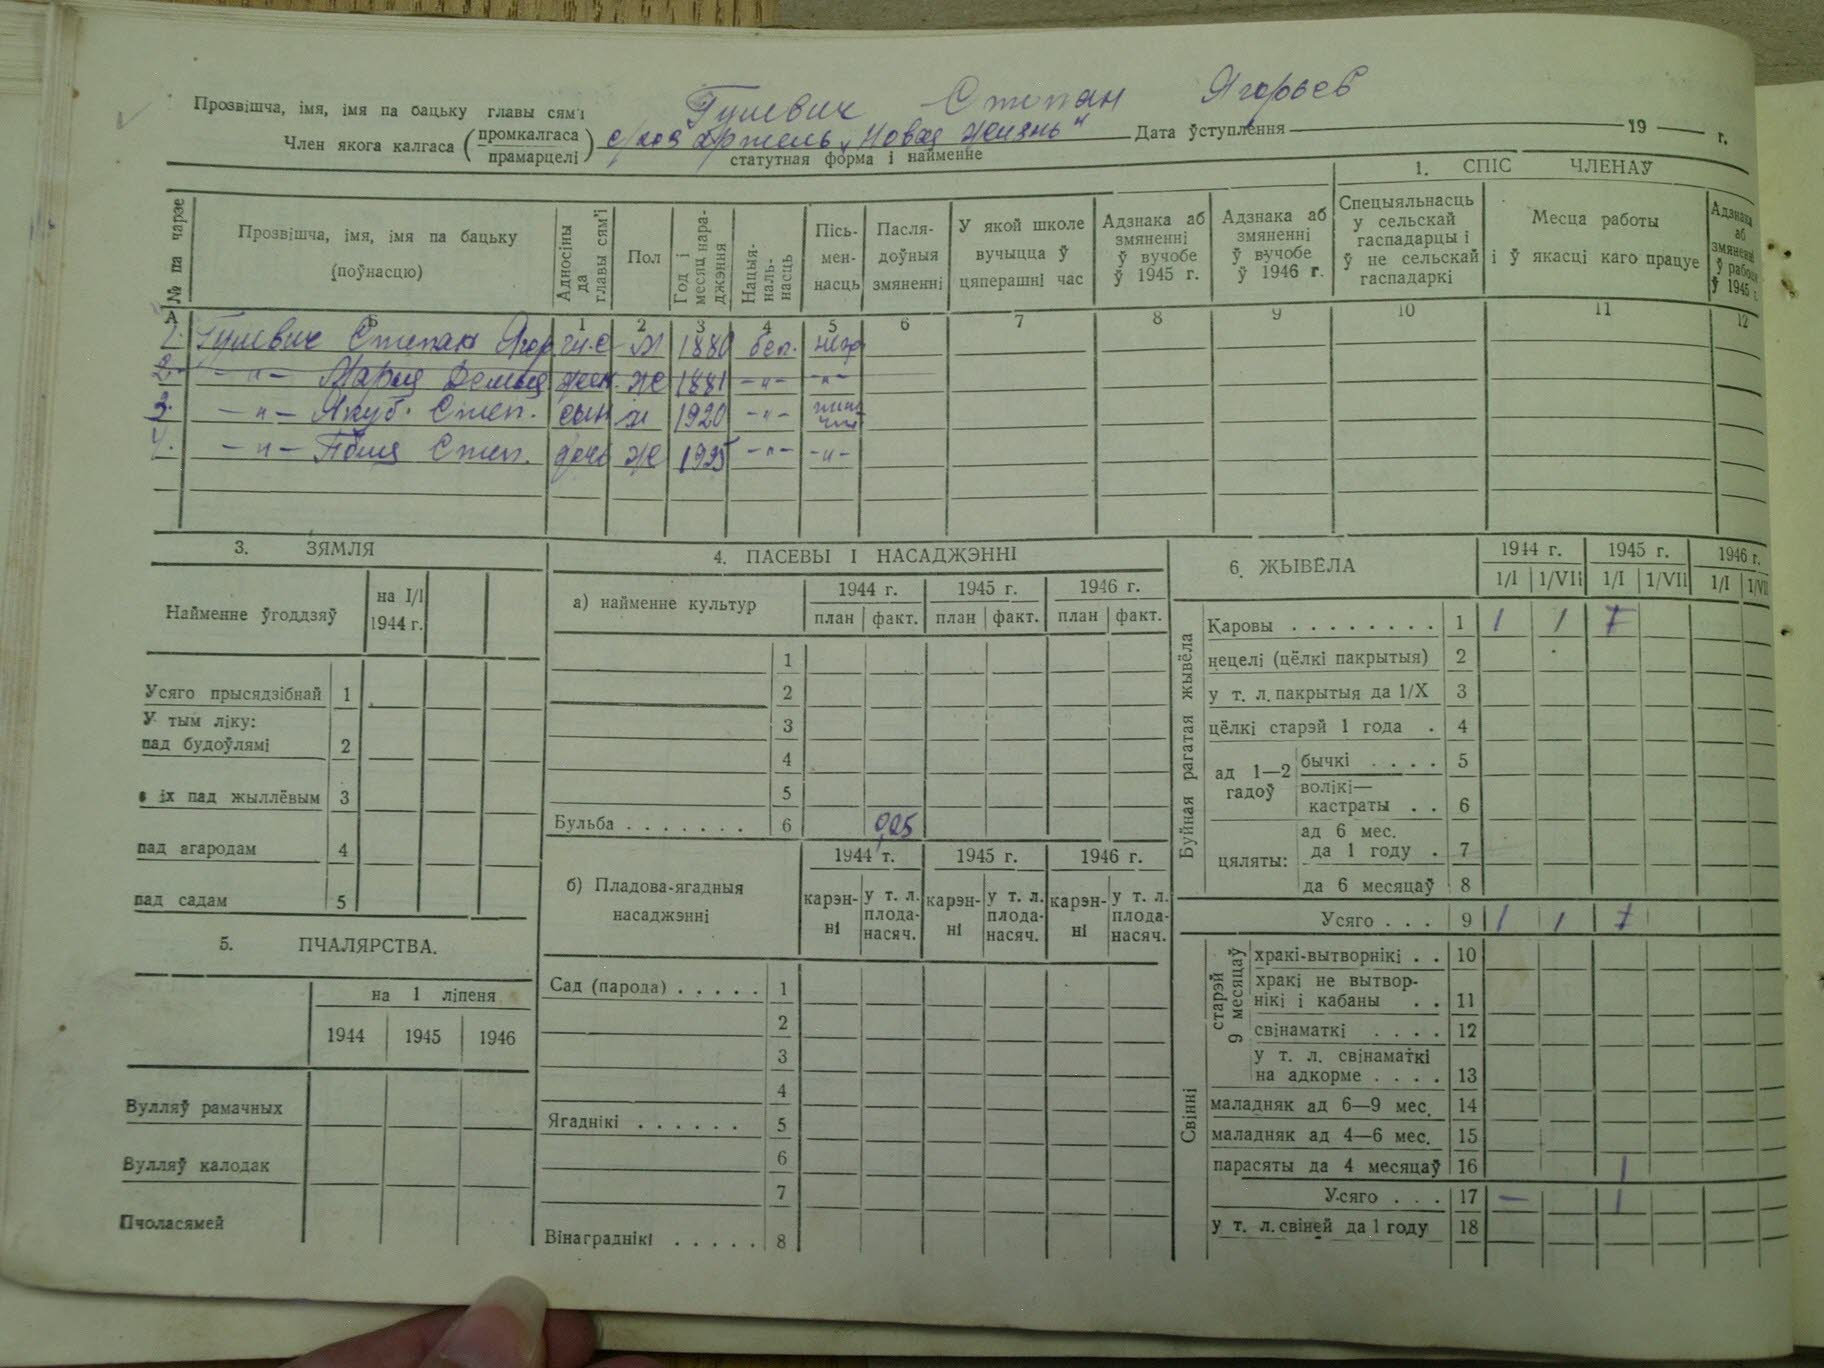 Прозвішча, імя, імя па бацьку главы сям'і Гулевич Степан Ягорьев
Член якога калгаса (промкалгаса / прамарцелі) с/хоз артель „Новая жизнь" Дата ўступлення 19 г.
статутная форма і найменне
1. СПІС ЧЛЕНАЎ
№ па чарзе
Прозвішча, імя, імя па бацьку (поўнасцю)
Адносіны да главы сям'і
Пол
Год і месяц нараджэння
Нацыянальнасць
Пісьменнасць
Паслядоўныя змяненні
У якой школе вучыцца ў цяперашні час
Адзнака аб змяненні ў вучобе ў 1945 г.
Адзнака аб змяненні ў вучобе ў 1946 г.
Спецыяльнасць у сельскай гаспадарцы і ў не сельскай гаспадаркі
Месца работы і ў якасці каго працуе
Адзнака аб змяненні ў рабоце ў 1945 г.
А Б 1 2 3 4 5 6 7 8 9 10 11 12
1. Гулевич Степан Ягор гл.с м 1880 бел. негр
2. -"- Мария Демид жен. ж 1881 -"- -"-
3. -"- Якуб. Степ. сын м 1920 -"-
4. -"- Степ. дочь ж 1925 -"- -"-
3. ЗЯМЛЯ
Найменне ўгоддзяў
на I/I 1944 г.
Усяго прысядзібнай 1
У тым ліку:
пад будоўлямі 2
з іх пад жыллёвым 3
пад агародам 4
пад садам 5
5. ПЧАЛЯРСТВА.
на 1 ліпеня
1944 1945 1946
Вулляў рамачных
Вулляў калодак
Пчоласямей
4. ПАСЕВЫ І НАСАДЖЭННІ
а) найменне культур
1944 г. 1945 г. 1946 г.
план факт. план факт. план факт.
1
2
3
4
5
Бульба . . . . . . . 6 0,25
б) Пладова-ягадныя насаджэнні
1944 г. 1945 г. 1946 г.
карэнні у т. л. плоданасяч. карэнні у т. л. плоданасяч. карэнні у т. л. плоданасяч.
Сад (парода) . . . . . 1
2
3
4
Ягаднікі . . . . . . 5
6
7
Вінаграднікі . . . . . 8
6. ЖЫВЁЛА
1944 г. 1945 г. 1946 г.
1/I 1/VII 1/I 1/VII 1/I 1/VII
Буйная рагатая жывёла
Каровы . . . . . . . . 1 1 1
нецелі (цёлкі пакрытыя) 2
у т. л. пакрытыя да 1/X 3
цёлкі старэй 1 года . 4
ад 1—2 гадоў
бычкі . . . . 5
волікі—кастраты . . 6
цяляты:
ад 6 мес. да 1 году . 7
да 6 месяцаў 8
Усяго . . . 9 1 1
Свінні
старэй 9 месяцаў
хракі-вытворнікі . . 10
хракі не вытворнікі і кабаны . . 11
свінаматкі . . . . 12
у т. л. свінаматкі на адкорме . . . . 13
маладняк ад 6—9 мес. 14
маладняк ад 4—6 мес. 15
парасяты да 4 месяцаў 16 1
Усяго . . . 17 — 1
у т. л. свіней да 1 году 18